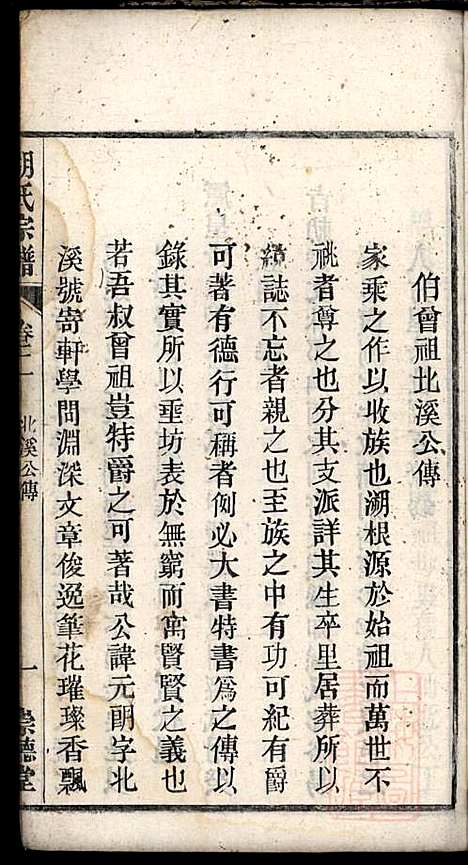 伯曾祖北溪公傳
家乘之作以收族也溯根源於始祖而萬世不
祧者尊之也分其支派詳其生卒里居葬所以
續誌不忘者親之也至族之中有功可紀有爵
可著有德行可稱者例必大書特書為之傳以
錄其實所以垂坊表於無窮而寓賢賢之義也
若吾叔曾祖豈特爵之可著哉公諱元朗字北
溪號寄軒學問淵深文章俊逸筆花璀璨香飄
胡氏宗譜 卷二 北溪公傳 一 崇德堂